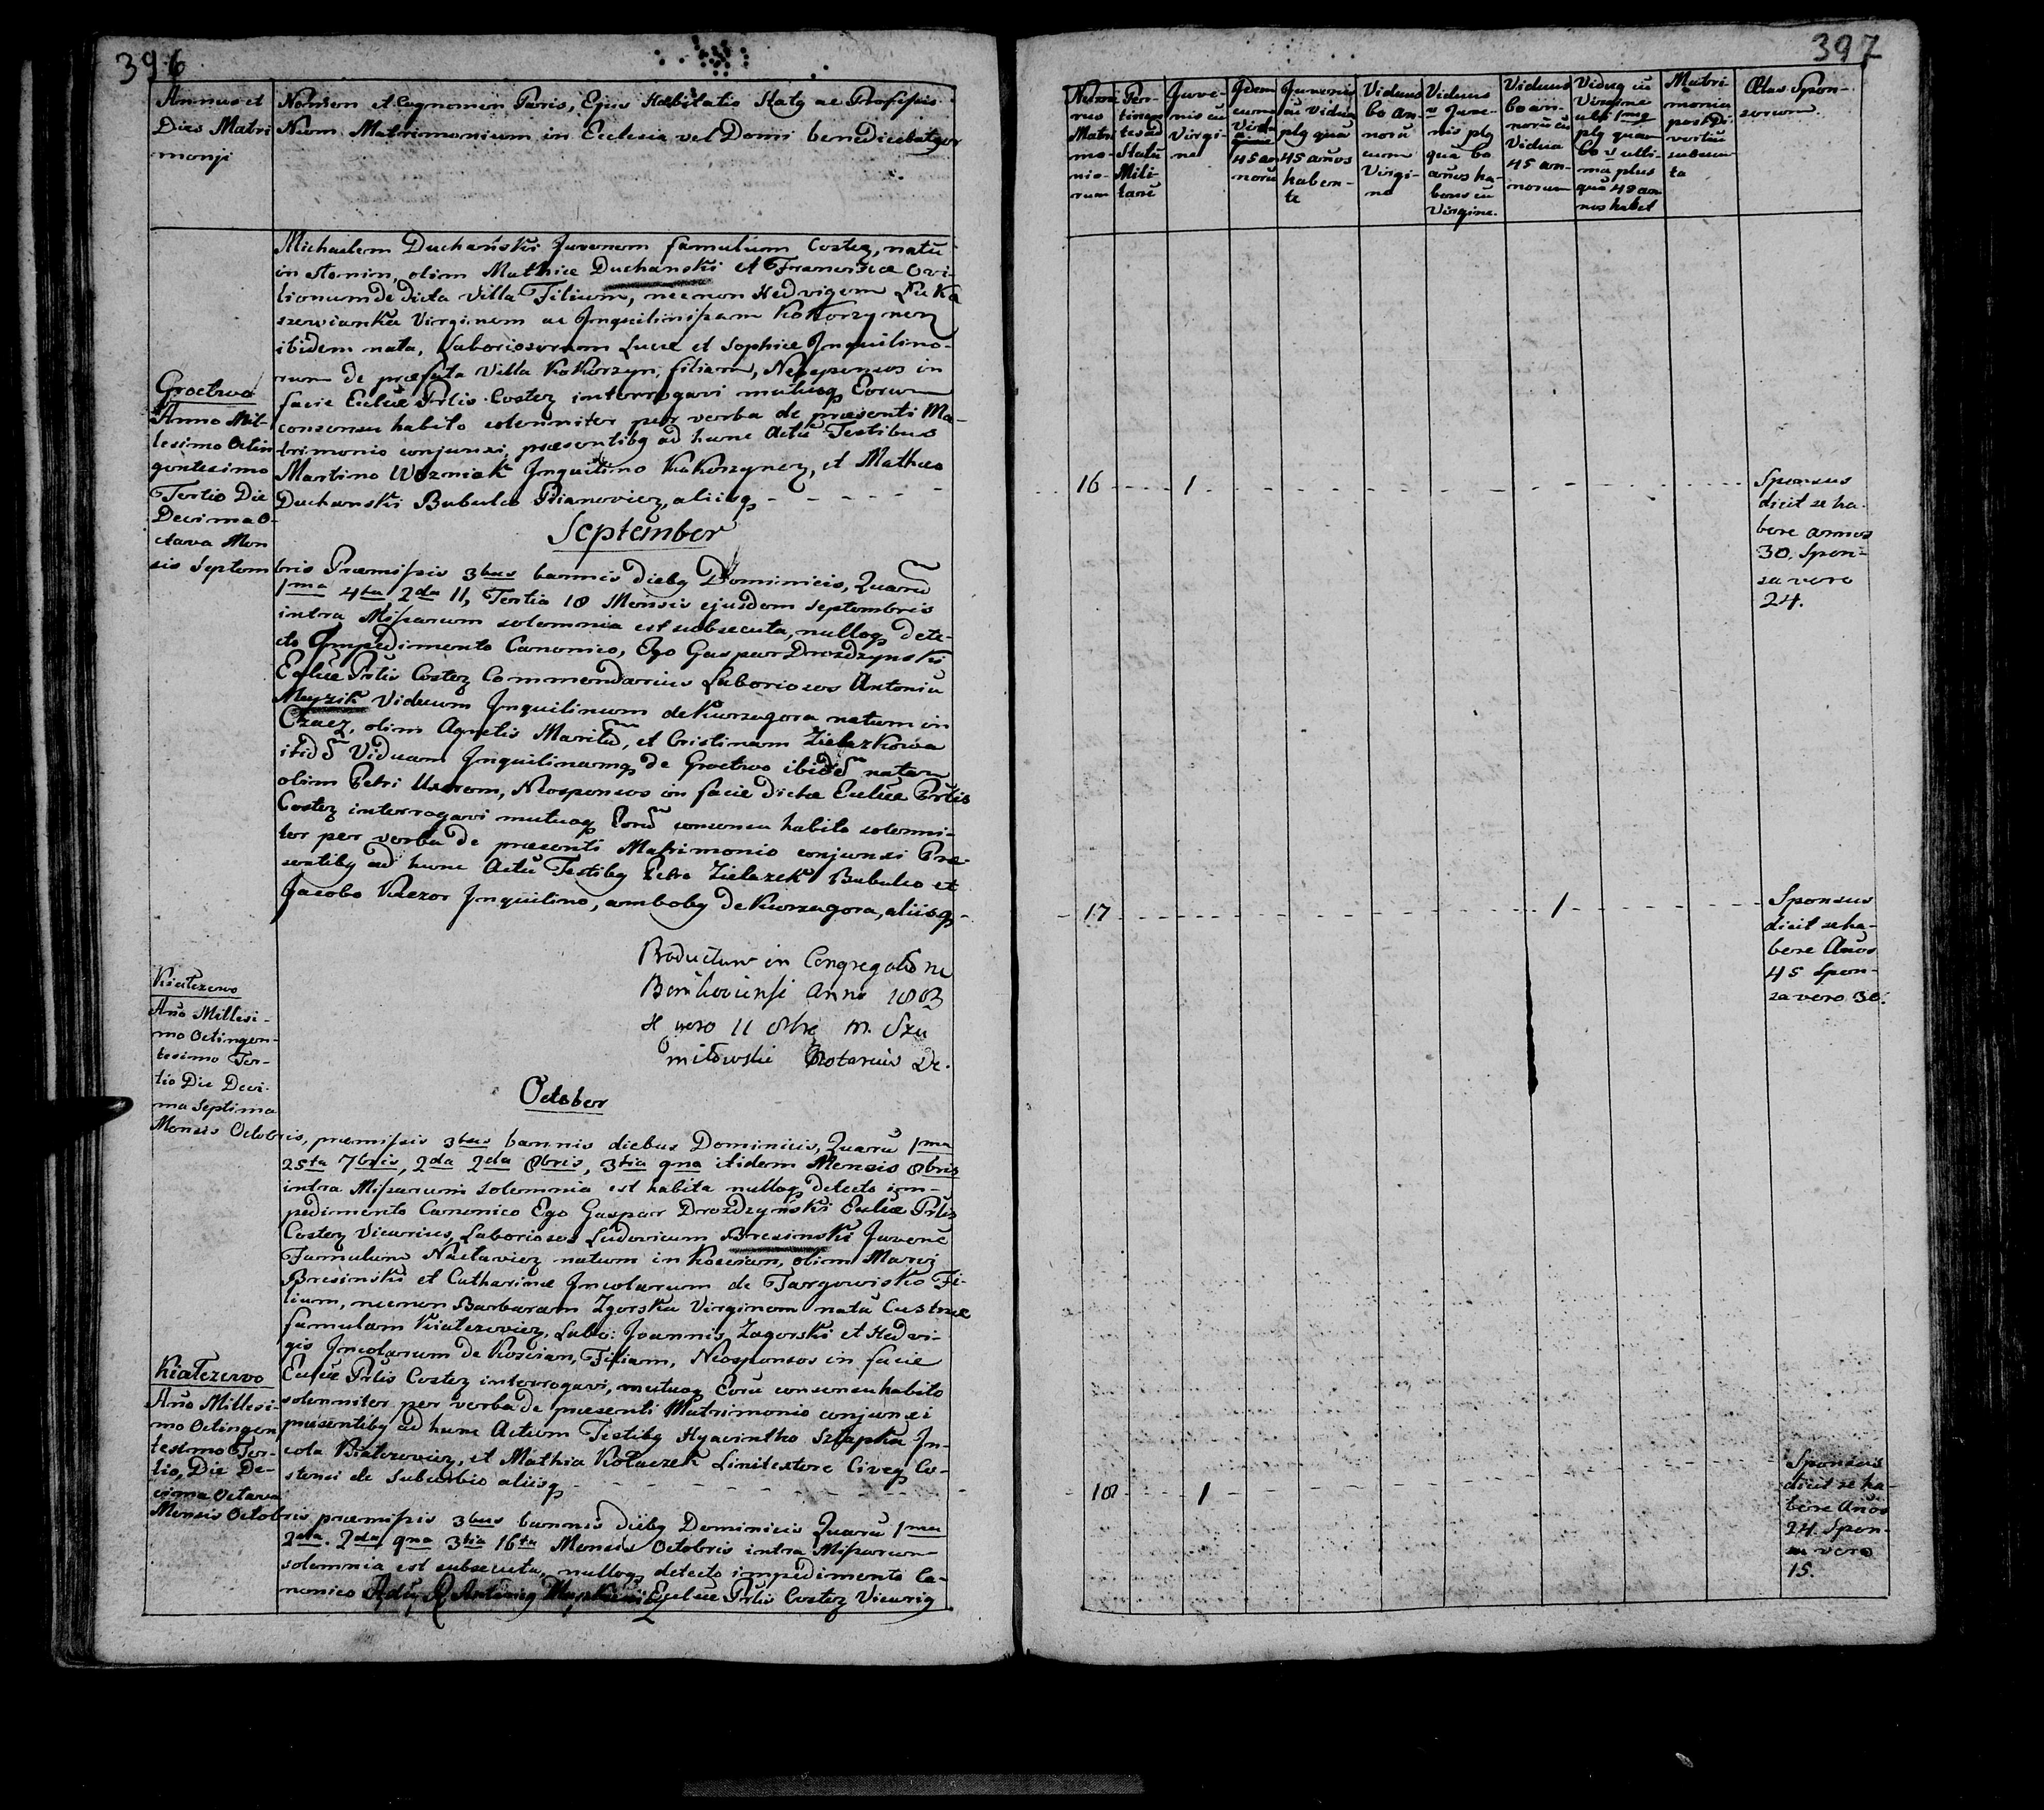 396
Annus et
Dies Matri
monji
Nomen et Cognomen Paris, Ejus Habitatio Statq ac Professio.
Num Matrimonium in Ecclesia vel Domi benedicebatur
Michaelem Duchański Juvenem famulum Costez, natū
in Stonin, olim Mathiæ Duchanski et Franciscæ Ovi-
lionum de dicta Villa Filium, necnon Hedvigem Luka
szewianka Virginem ac Inquilinissam Kokorzynen
ibidem nata, Laboriosorum Lucæ et Sophiæ Inquilino-
rum de præfata Villa Kokorzyn, filiam, Neosponsos in
facie Eccliæ Prlis Costez interrogavi mutuoq Eorum
consensu habito solemniter per verba de præsenti Ma-
trimonio conjunxi, præsentibq ad hunc Actū Testibus
Martino Wozniak Inquilino Kokorzynen, et Matheo
Duchanski Bubulco Pianoviez, aliisq
Groetwo
Anno Mil-
lesimo Octin
gentesimo
Tertio Die
Decima O-
ctava Men
sis Septem
September
bris Præmissis 3bus bannis diebq Dominicis, Quarū
1ma 4ta 2da 11, Tertia 18 Mensis ejusdem Septembris
intra Missarum solemnia est subsecuta, nulloq dete-
cto Impedimento Canonico, Ego Gaspar Drozdzynski
Eccliæ Prlis Costez Commendarius Laboriosos Antoniū
Muszik Viduum Inquilinum de Kurzagora natum in
Czacz, olim Agnetis Maritū, et Cristinam Zielazkowa
itidē Viduam Inquilinamq de Groetwo ibidē natam
olim Petri Uxorem, Neosponsos in facie dictæ Eccliæ Prlis
Costez interrogavi mutuoq Eorū consensu habito solemni-
ter per verba de præsenti Matrimonio conjunxi Præ-
sentibq ad hunc Actū Testibq Petro Zielazek Bubulco et
Jacobo Inquilino, ambobq de Kurzagora, aliisq
Productum in Congregatione
Anno 1803
vero 11
Notarius
Kiatezewo
Año Millesi-
mo Octingen-
tesimo Ter-
tio Die Deci-
ma Septima
Mensis Octob
October
ris, præmissis 3bus bannis diebus Dominicis, Quarū 1ma
25ta 7bris, 2da 2da 8bris, 3tia 9na itidem Mensis 8bris
intra Missarum solemnia est habita nulloq detecto im-
pedimento Canonico Ego Gaspar Drozdzyński Eccliæ Prlis
Costez Vicarius, Laboriosos Ludovicum Bresinski Juvenē
Famulum Nactaviez natum in Koscian, olim Marci
Bresinski et Catharinæ Incolarum de Targowisko Fi-
lium, necnon Barbaram Zgorska Virginem natā Custræ
famulam Kiatezeviez, Labo: Joannis Zagorski et Hedvi-
gis Incolarum de Koscian, Filiam, Neosponsos in facie
Eccliæ Prlis Costez interrogavi, mutuoq Eorū consensu habito
solemniter per verba de præsenti Matrimonio conjunxi
præsentibq ad hunc Actum Testibq Hyacintho Szlapka In-
cola Kiatezeviez, et Mathia Kołaczek Linitextore Civeq Co-
stensi de Suburbio aliisq
Kiatezewo
Año Millesi-
mo Octingen
tesimo Ter-
tio, Die De-
cima Octava
Mensis Octob
ris præmissis 3bus bannis diebq Dominicis Quarū 1ma
2da. 2da 9na 3tia 16ta Mensis Octobris intra Missarum
solemnia est subsecuta, nulloq detecto impedimento Ca-
nonico Eccliæ Prlis Costez Vicariq
397
Nume
rus
Matri
mo-
nio-
rum
Per-
tinen
tes ad
Statū
Mili-
tarē
Juve-
nis cū
Virgi-
ne
Idem
cum
Vidua
45 an
norū
Juvenis
cū Vidua
plq quā
45 años
haben-
te
Viduus
60 an-
norū
cum
Virgi-
ne
Viduus
Juve-
nis plq
quā 60
años ha-
bens cū
Virgine.
Viduus
60 an-
norū cū
Vidua
45 an-
norum
Viduq cū
Virgine
ubi 1mq
plq quam
60 ulti-
ma plus
quā 48 an
nos habet
Matri
monia
post di
vortiū
inita
Ætas Spon-
sorum.
16 1
Sponsus
dicit se ha-
bere annos
30. Spon-
sa vero
24.
17 1
Sponsus
dicit se ha-
bere Años
45 Spon-
sa vero 30.
18 1
Sponsus
dicit se ha-
bere Años
24. Spon-
sa vero
15.